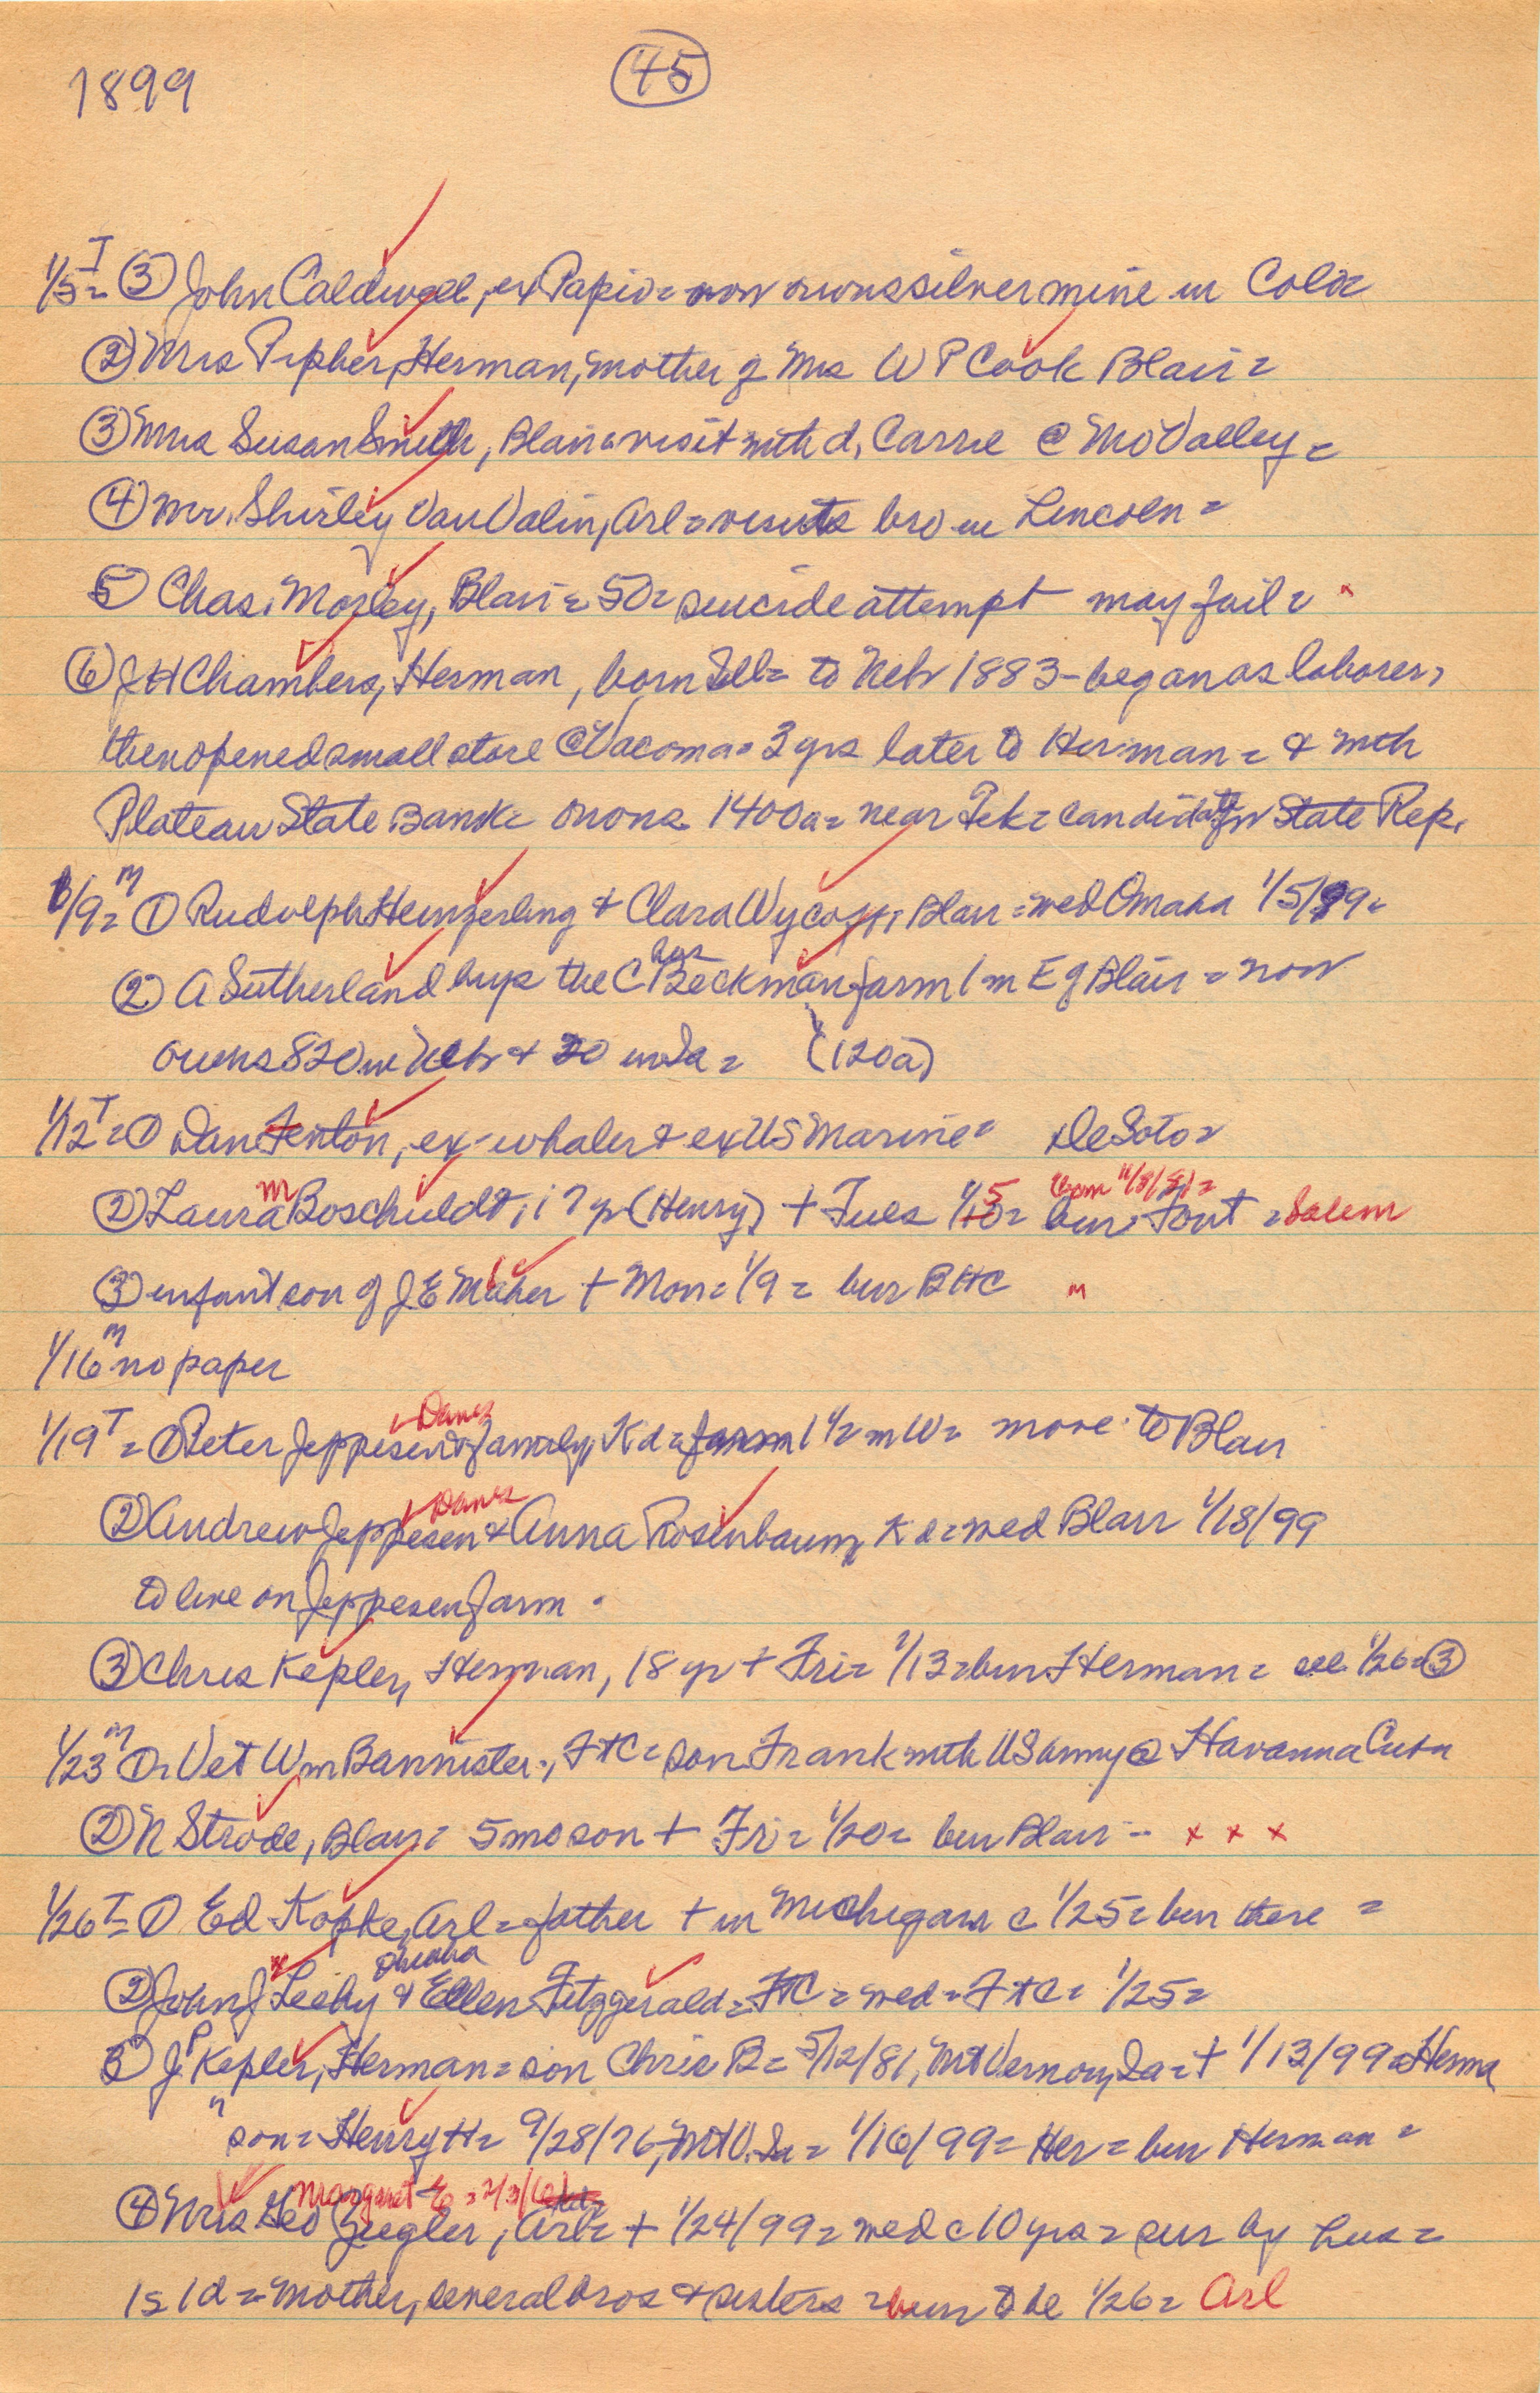 1899
45
1/5 T = ③ John Caldwell, ex Papio = now owns silver mine in Colo =
② Mrs Pipher, Herman, mother of Mrs W P Cook Blair =
③ Mrs Susan Smith, Blair = visit with d, Carrie @ Mo Valley =
④ Mr. Shirley Van Valin, Arl = visits bro in Lincoln =
⑤ Chas. Morley, Blair = 50 = suicide attempt may fail = x
⑥ J H Chambers, Herman, born Ill = to Nebr 1883 - began as laborer,
then opened small store @ Vacoma = 3 yrs later to Herman = & with
Plateau State Bank = owns 1400a = near Tek = candidate for State Rep.
1/9 = M ① Rudolph Heinzerling & Clara Wycoff, Blair = wed Omaha 1/5/99 =
② A Sutherland buys the Chas Beckman farm 1 m E of Blair = now
owns 820 in Nebr & 20 in Ia = (120a)
1/12 T = ① Dan Fenton, ex-whaler & ex US Marine = DeSoto =
② Laura M Boschuldt, 17 yr (Henry) + Tues 1/10 = 5 bur Font = Salem
③ infant son of J E Maher + Mon = 1/9 = bur BHC "
1/16 M no paper
1/19 T = ① Peter Jeppesen & family, Kd = farm 1 1/2 m W = move to Blair
Danes
② Andrew Jeppesen & Anna Rosenbaum, Kd = wed Blair 1/18/99
Danes
to live on Jeppesen farm .
③ Chris Kepler, Herman, 18 yr + Fri = 1/13 = bur Herman = see 1/26 = ③
1/23 M ① Vet Wm Bannister, FtC = son Frank with US army @ Havanna Cuba
② N Strode, Blair = 5 mo son + Fri = 1/20 = bur Blair -- x x x
1/26 T = ① Ed Kopke, Arl = father + in Michigan c 1/25 = bur there =
② John J Leehy & Ellen Fitzgerald = FtC = wed = FtC = 1/25 =
Omaha
③ J P Kepler, Herman = son Chris B = 5/12/81, Mt Vernon, Ia = + 1/13/99 = Herma
" son = Henry H = 9/28/76, Mt V. Ia = 1/16/99 = Her = bur Herman =
④ Mrs Geo Ziegler, Arl = + 1/24/99 = wed c 10 yrs = sur by hus =
Margaret E =
1s 1d = mother, several bros & sisters = bur to be 1/26 = Arl